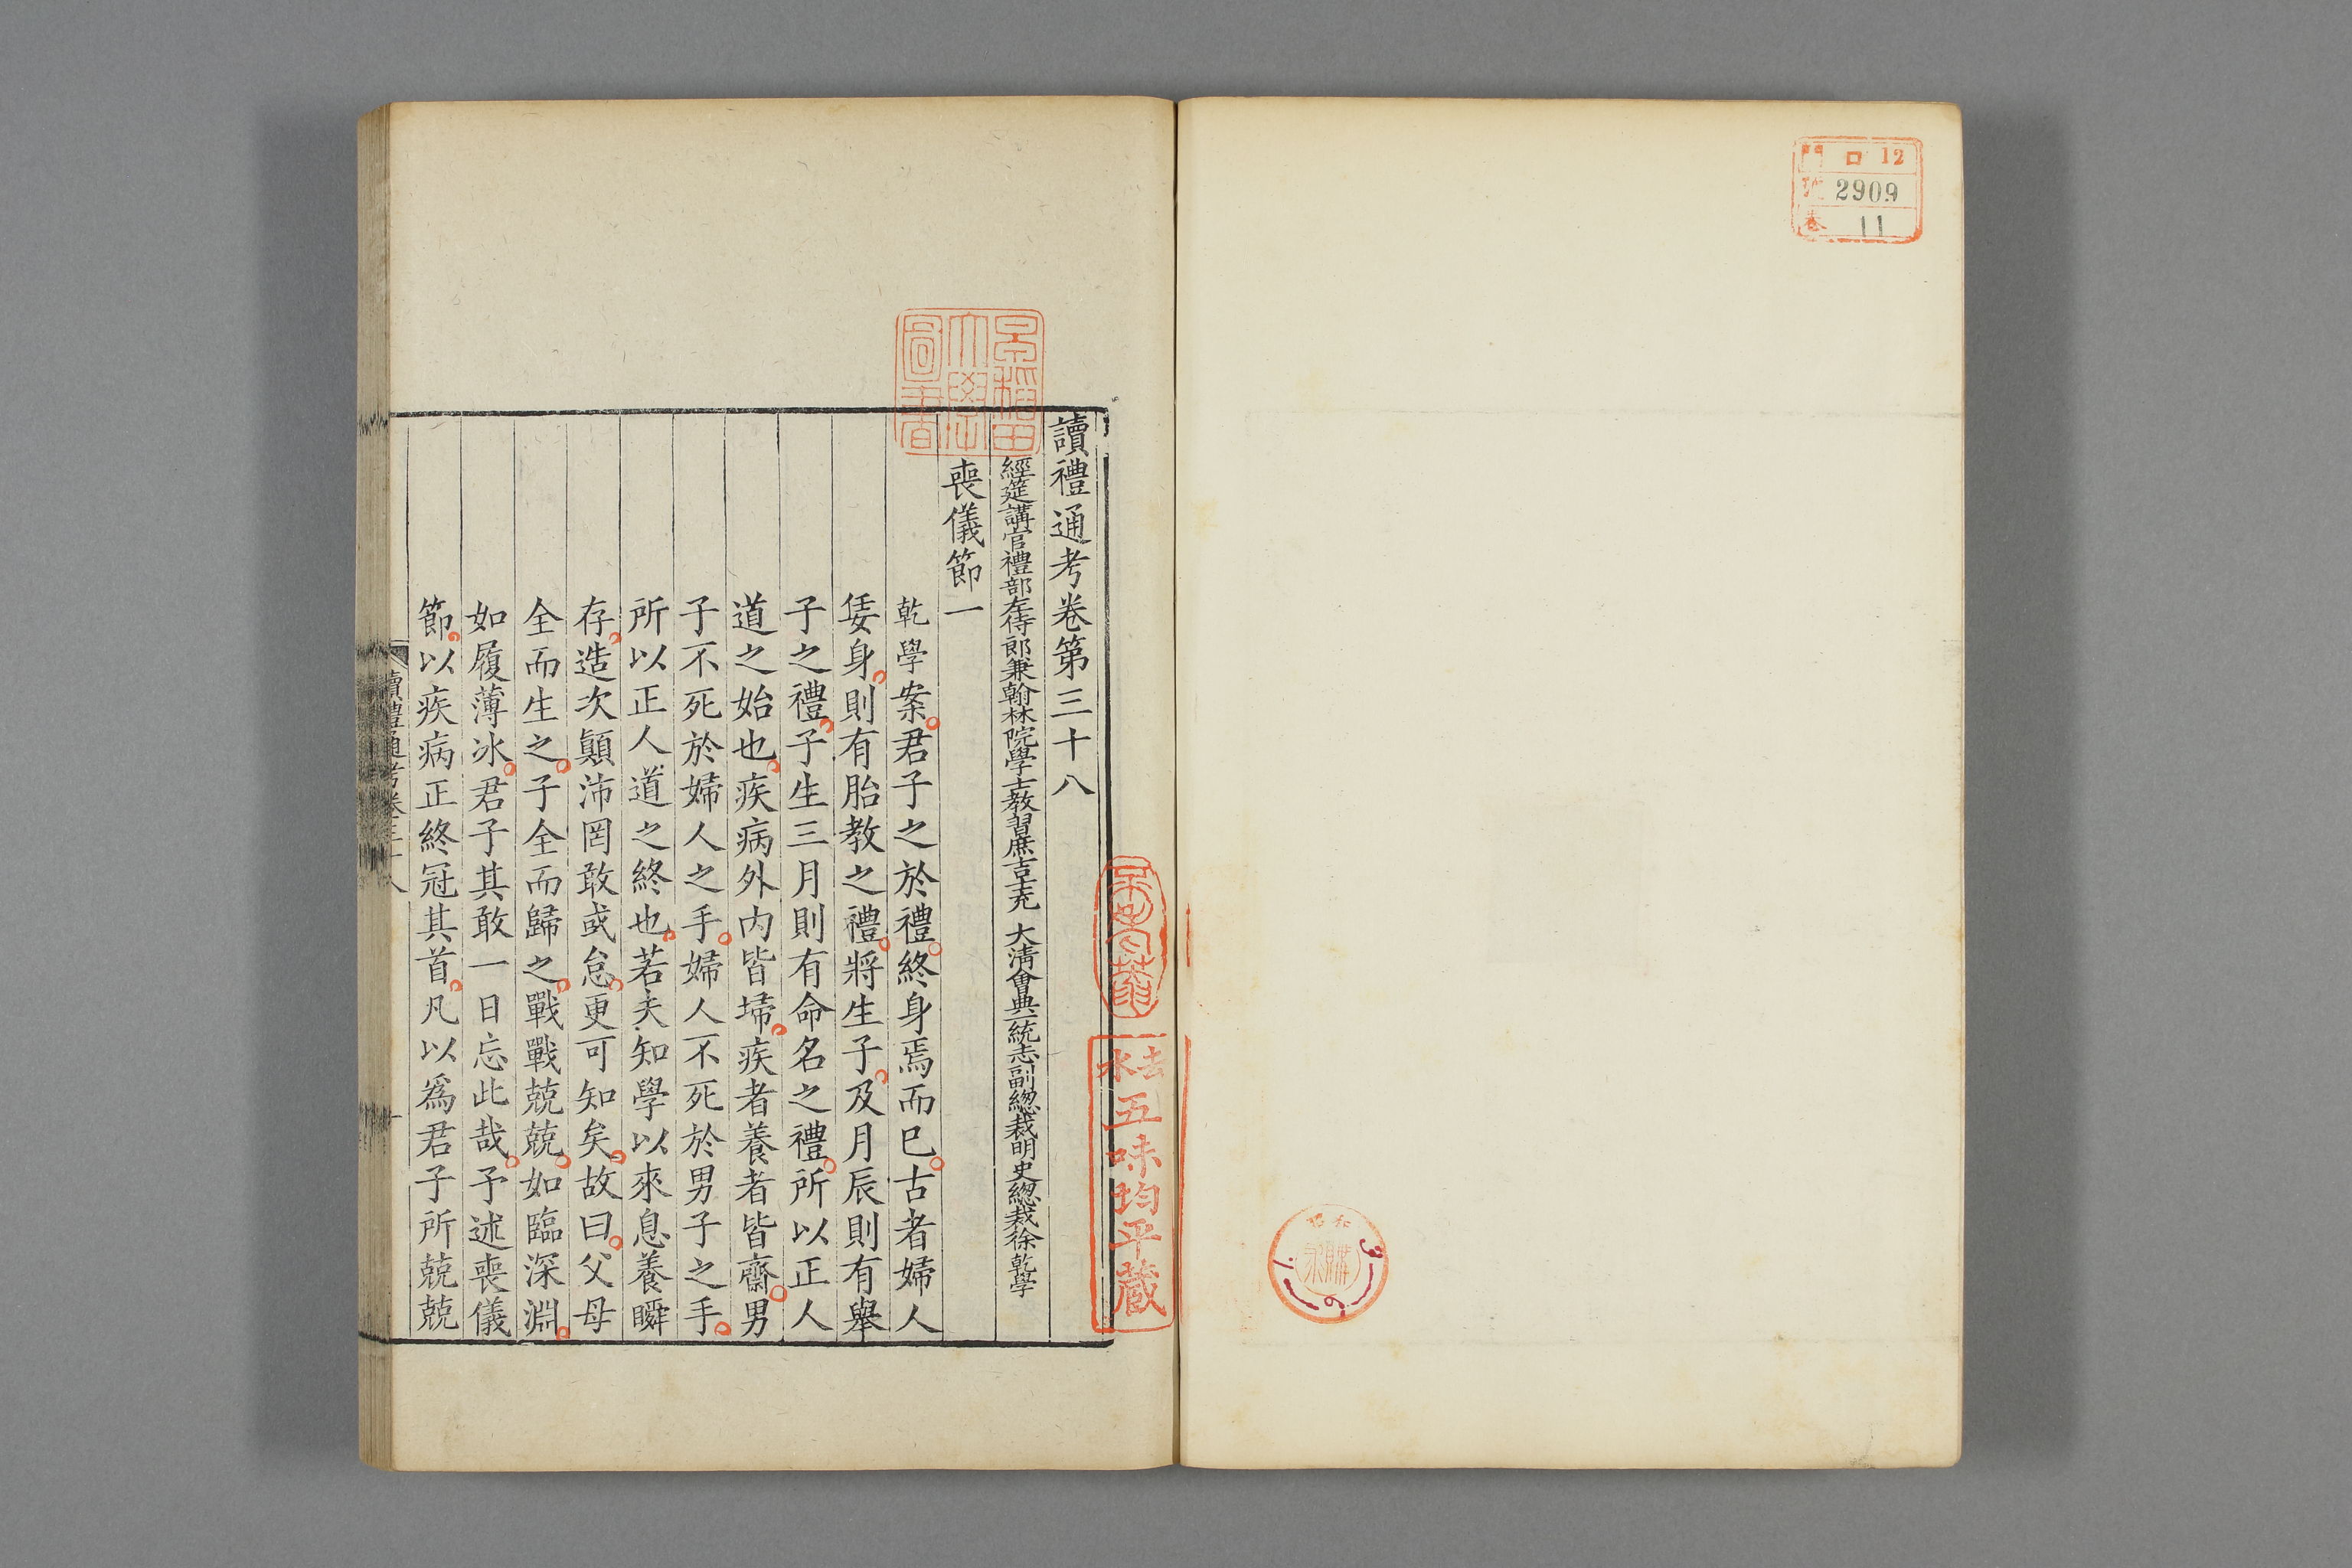 門 ロ 12
號 2909
卷 11
讀禮通考卷第三十八
經筵講官禮部左侍郎兼翰林院學士教習庶吉士充 大清會典一統志副總裁明史總裁徐乾學
喪儀節一
乾學案君子之於禮終身焉而已古者婦人
㑴身則有胎教之禮將生子及月辰則有舉
子之禮子生三月則有命名之禮所以正人
道之始也疾病外内皆埽疾者養者皆齋男
子不死於婦人之手婦人不死於男子之手
所以正人道之終也若夫知學以來息養瞬
存造次顚沛罔敢或怠更可知矣故曰父母
全而生之子全而歸之戰戰兢兢如臨深淵
如履薄冰君子其敢一日忘此哉予述喪儀
節以疾病正終冠其首凡以爲君子所兢兢
讀禮通考卷三十八
一
早稻田大學圖書
五味均平蔵